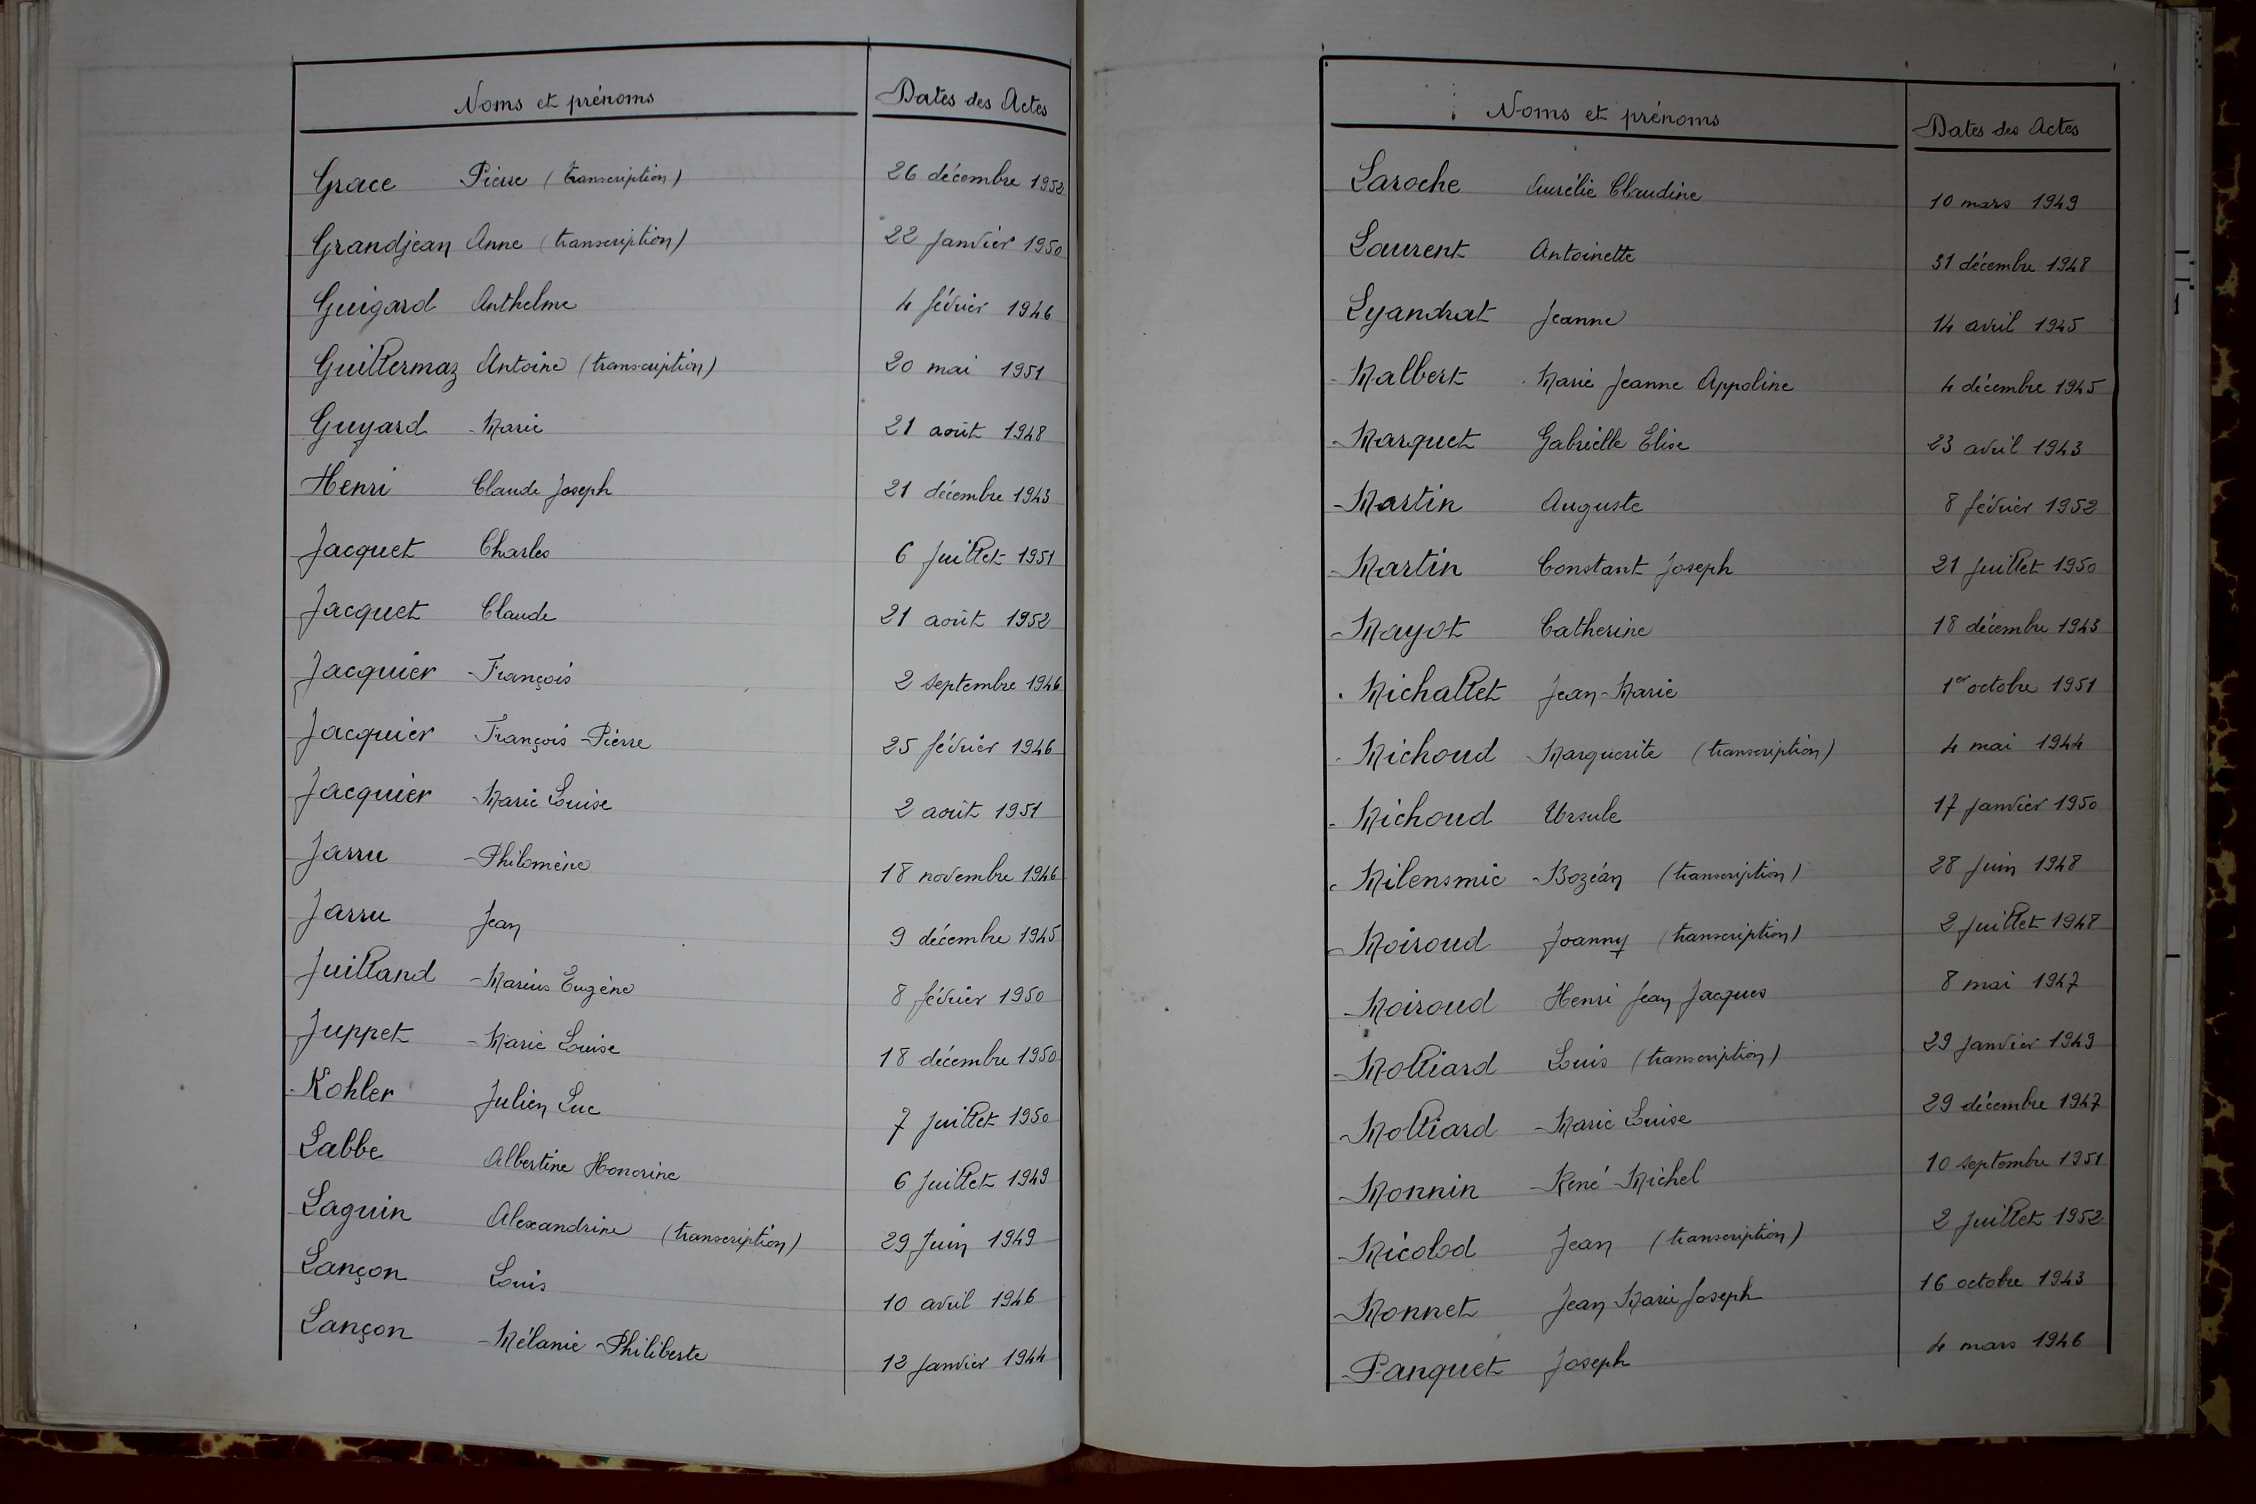 Noms et prénoms Dates des Actes
Grace Pierre (transcription) 26 décembre 1952
Grandjean Anne (transcription) 22 Janvier 1950
Guigard Anthelme 4 février 1946
Guillermaz Antoine (transcription) 20 mai 1951
Guyard Marie 21 août 1948
Henri Claude Joseph 21 décembre 1943
Jacquet Charles 6 Juillet 1951
Jacquet Claude 21 août 1952
Jacquier François 2 septembre 1946
Jacquier François Pierre 25 février 1946
Jacquier Marie Louise 2 août 1951
Jarru Philomène 18 novembre 1946
Jarru Jean 9 décembre 1945
Juilland Marius Eugène 8 février 1950
Juppet Marie Louise 18 décembre 1950
Kohler Julien Luc 7 Juillet 1950
Labbe Albertine Honorine 6 Juillet 1949
Laguin Alexandrine (transcription) 29 Juin 1949
Lançon Louis 10 avril 1946
Lançon Mélanie Philiberte 12 Janvier 1944
Noms et prénoms Dates des Actes
Laroche Aurélie Claudine 10 mars 1949
Laurent Antoinette 31 décembre 1948
Lyandrat Jeanne 14 avril 1945
Malbert Marie Jeanne Appoline 4 décembre 1945
Marquet Gabrielle Elise 23 avril 1943
Martin Auguste 8 février 1952
Martin Constant Joseph 21 Juillet 1950
Mayot Catherine 18 décembre 1943
Michallet Jean-Marie 1er octobre 1951
Michoud Marguerite (transcription) 4 mai 1944
Michoud Ursule 17 Janvier 1950
Milensmic Bozéan (transcription) 28 Juin 1948
Moiroud Joanny (transcription) 2 Juillet 1948
Moiroud Henri Jean Jacques 8 mai 1947
Molliard Louis (transcription) 29 Janvier 1949
Molliard Marie Louise 29 décembre 1947
Monnin René Michel 10 septembre 1951
Nicolod Jean (transcription) 2 Juillet 1952
Monnet Jean Marie Joseph 16 octobre 1943
Panquet Joseph 4 mars 1946